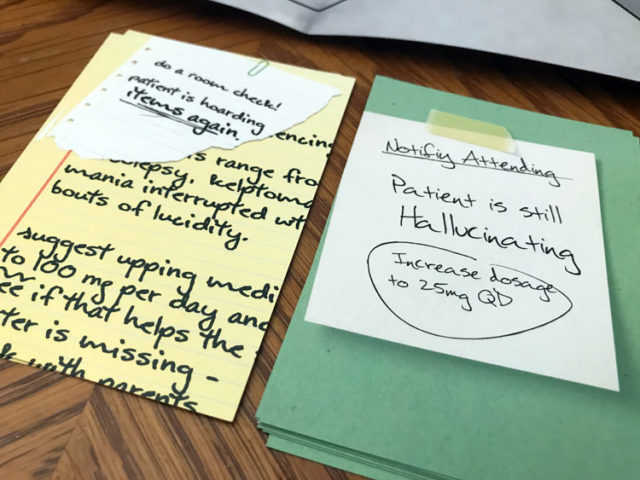 do a room check!
patient is hoarding
items again.
encing
s range fro
olepsy, kelptoma
mania interrupted wt
bouts of lucidity.
suggest upping medi
to 100 mg per day and
ee if that helps the
ter is missing -
with parents
Notifiy Attending
Patient is still
Hallucinating
Increase dosage
to 25mg QD